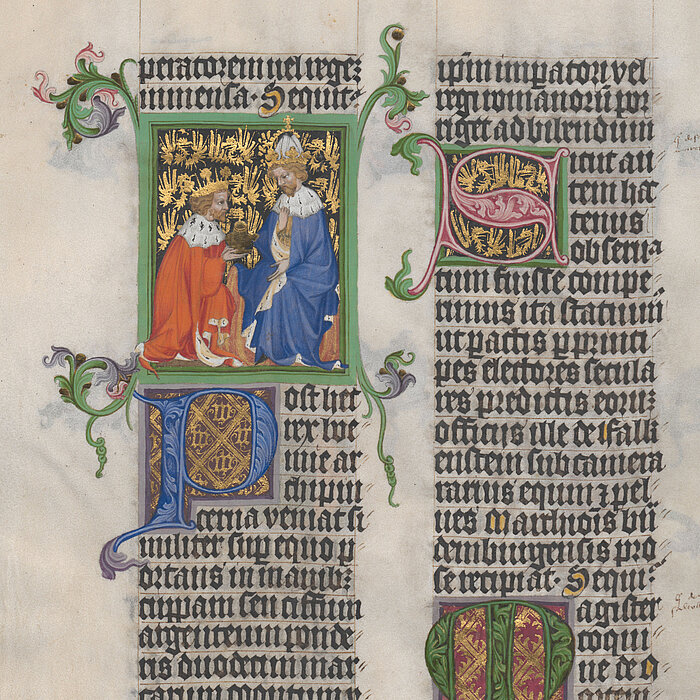 peratorem uel regez
immensa · Sequit
Post hec
rex boe
mie ar
chipin
cerna veniat si
militer sup equo p
ortans in manibz
cuppam seu ciffum
argenteum ponde
ris duodecim mar
carum
ipsi impatori vel
regi romanorū por
riget ad bibendum
Sicut au
tem hac
tenus
obserua
tum fuisse compe
rimus ita statuim
ut pactis p princi
pes electores secula
res predictis eorū
officijs ille de falli
enstein subcamera
rarius equm z pel
ues Marchiōis bū
demburgensis pro
se recipiat · Sequi
Magister
coqui
ne de